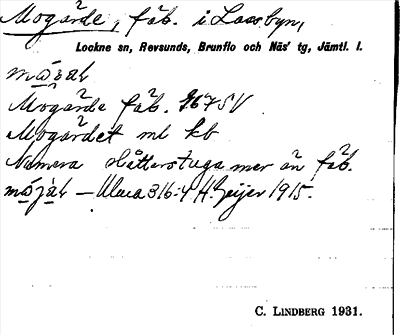 Mogärde, fäb. i Lassbyn,
Lockne sn, Revsunds, Brunflo och Näs' tg, Jämtl. l.
Mogärde fäb. 267 SV
Mogärdet ml kb
Numera slåtterstuga mer än fäb.
— Ulma 316:4 H. Geijer 1915.
C. LINDBERG 1931.